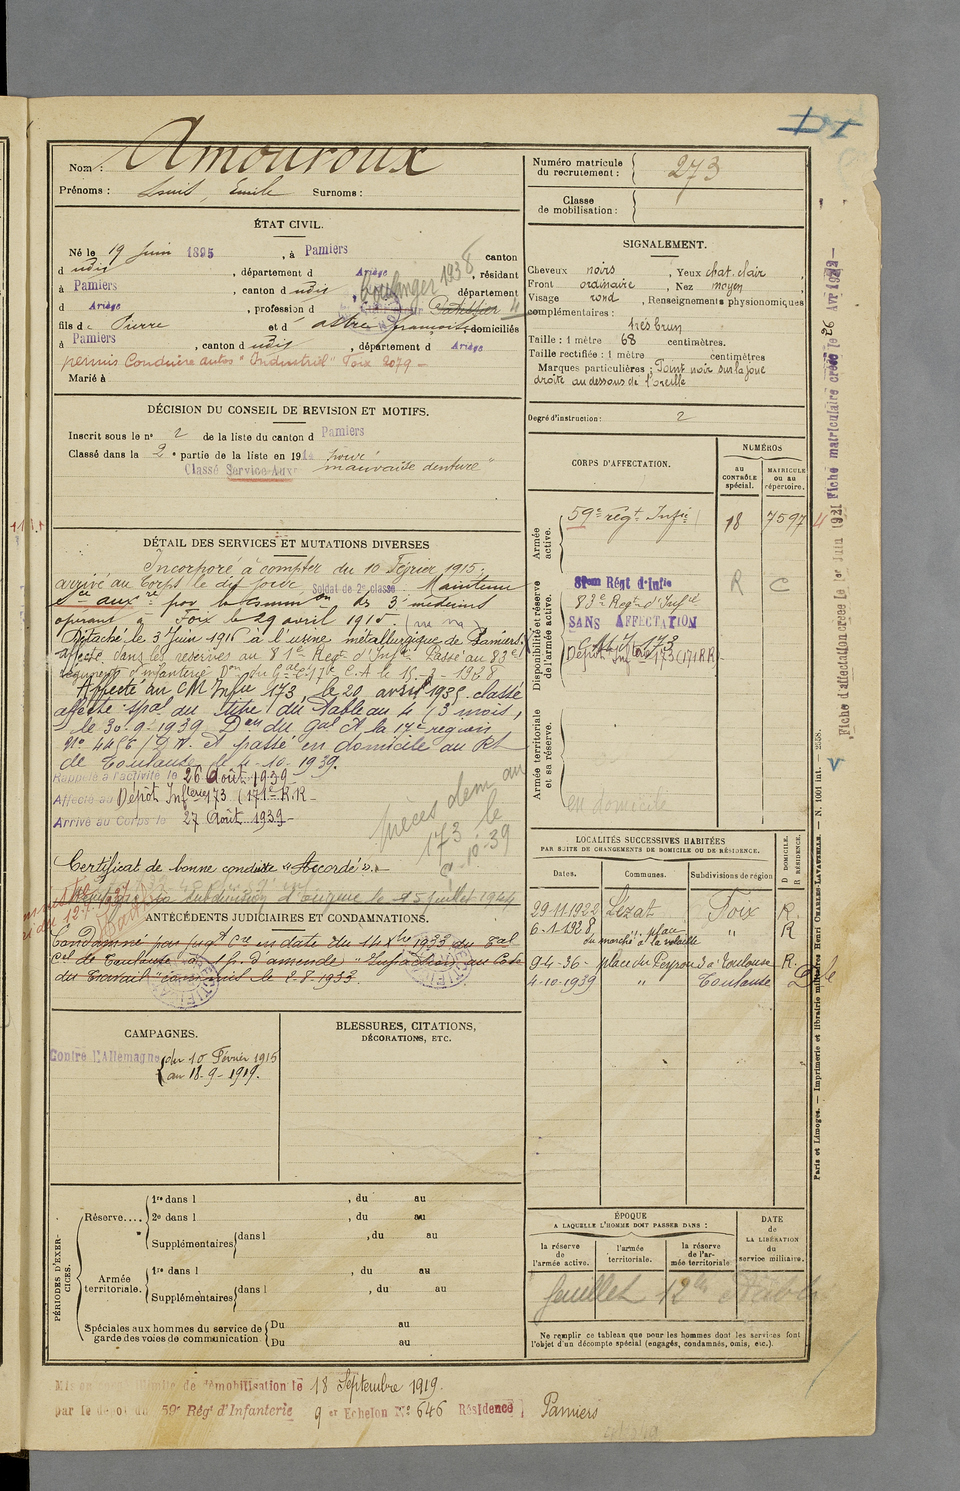 D1
Nom : Amouroux
Prénoms : Louis, Emile Surnoms :
ÉTAT CIVIL.
Né le 19 Juin 1895, à Pamiers canton
d udit, département d Ariège, résidant
à Pamiers, canton d udit département
d Ariège, profession d boulanger 1938
fils de Pierre et d astre domiciliés
à Pamiers, canton d udit, département d Ariège
permis Conduire autos "Industriel" Foix 2079 -
Marié à
DÉCISION DU CONSEIL DE REVISION ET MOTIFS.
Inscrit sous le n° 2 de la liste du canton d Pamiers
Classé dans la 2e partie de la liste en 191
Classé Service Aux "mauvaise denture"
DÉTAIL DES SERVICES ET MUTATIONS DIVERSES
Incorporé à compter du 10 Février 1915,
arrivé au Corps le dit jour, Soldat de 2e classe Maintenu
Sce auxre par la de 3 médecins
opérant à Foix le 29 avril 1915.
Détaché le 3 Juin 1916 à l'usine métallurgique de Pamiers.
affecté dans les réserves au 81e Regt d'Infie Passé au 83e
régiment d'infanterie 17e C.A. le 15-3-1928
Affecté au CM Infie 173, le 20 avril 1935. classé
affecté spal au titre du Tableau 4 / 3 mois,
le 30-9-1939 Don du Gal Ct la 17e région
N° 4486 et passé en domicile au Rt
de Toulouse le 4-10-1939.
Rappelé à l'activité le 26 Août 1939
Affecté au Dépôt Infterie 173 (171e R.R-
Arrivé au Corps le 27 Août 1939-
pièces dem au
173 le
10-39
Certificat de bonne conduite "Accordé".
la subdivision d' le 15 juillet 1944
ANTÉCÉDENTS JUDICIAIRES ET CONDAMNATIONS.
Condamné par jugt en date du 14 Xbre 1933 du Tal
de Toulouse à 1 fr. d'amende "Infraction au Code
du Travail" commis le 2.8.1933.
CAMPAGNES.
Contre l'Allemagne du 10 Février 1915
au 18-9-1919.
BLESSURES, CITATIONS,
DÉCORATIONS, ETC.
PÉRIODES D'EXERCICES.
Réserve....
1re dans l , du au
2e dans l , du au
Supplémentaires dans l , du au
Armée territoriale.
1re dans l , du au
Supplémentaires dans l , du au
Spéciales aux hommes du service de garde des voies de communication.
Du au
Du au
Numéro matricule du recrutement : 273
Classe de mobilisation :
SIGNALEMENT.
Cheveux noirs, Yeux chat. clair
Front ordinaire, Nez moyen
Visage rond, Renseignements physionomiques
complémentaires :
très brun
Taille : 1 mètre 68 centimètres.
Taille rectifiée : 1 mètre centimètres
Marques particulières : Point noir sur la joue
droite au dessous de l'oreille
Degré d'instruction : 2
CORPS D'AFFECTATION.
NUMÉROS
au CONTRÔLE spécial.
MATRICULE ou au répertoire.
Armée active.
59e régt Infie 18 7597
Disponibilité et réserve de l'armée active.
81eme Régt d'Infie R C
83e Regt d'Infie
SANS AFFECTATION
Dépôt Infie 173 (171 RR)-
Armée territoriale et sa réserve.
en domicile
LOCALITÉS SUCCESSIVES HABITÉES
PAR SUITE DE CHANGEMENTS DE DOMICILE OU DE RÉSIDENCE.
Dates. Communes. Subdivisions de région D DOMICILE. R RÉSIDENCE.
29-11-1922 Lézat Foix R.
6-1-1928, " place " R
du marché à la volaille
9-4-36- place du Peyrou 3 à Toulouse R.
4-10-1939 " Toulouse D
ÉPOQUE
A LAQUELLE L'HOMME DOIT PASSER DANS :
la réserve de l'armée active.
l'armée territoriale.
la réserve de l'armée territoriale
DATE de LA LIBÉRATION du service militaire.
feuillet
Ne remplir ce tableau que pour les hommes dont les services font
l'objet d'un décompte spécial (engagés, condamnés, omis, etc.).
Fiche d'affectation créée le 1er Juin 1921 Fiche matriculaire créée le 26 Avr
Paris et Limoges. — Imprimerie et librairie militaires Henri CHARLES-LAVAUZELLE. — N. 1001 int. — 2558.
démobilisation le 18 Septembre 1919.
par le dépôt du 59e Régt d'Infanterie 9er Echelon N° 646 Résidence Pamiers